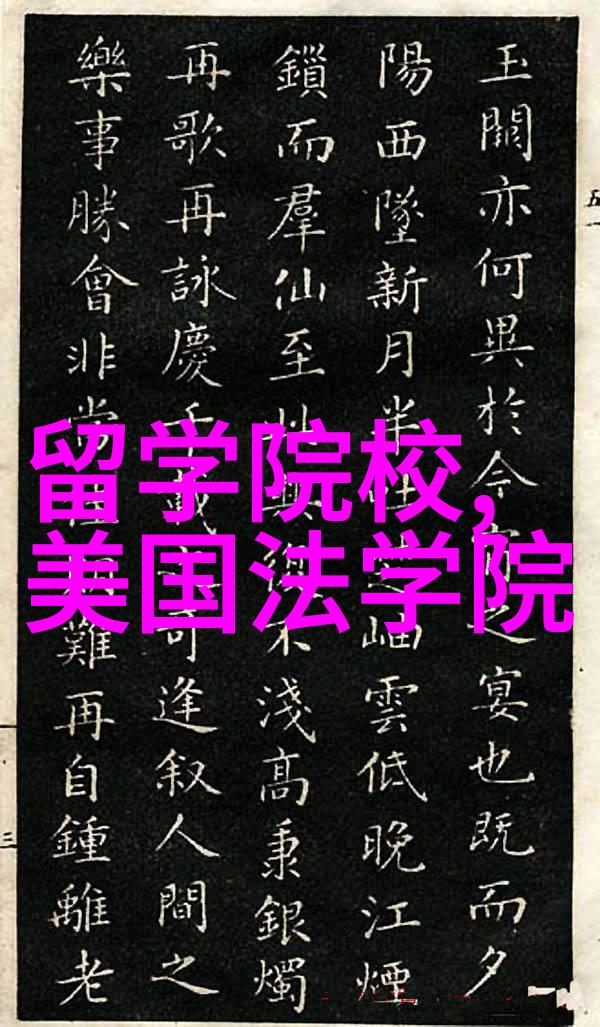 留学院校,
美国法学院
玉關亦何異於今之宴也既而夕
陽西墜新月半岫雲低晚江煙
鎖而羣仙至此興復不淺高秉銀燭
再歌再詠慶千載之可逢叙人間之
樂事勝會非常難再自鍾離老
五一
三